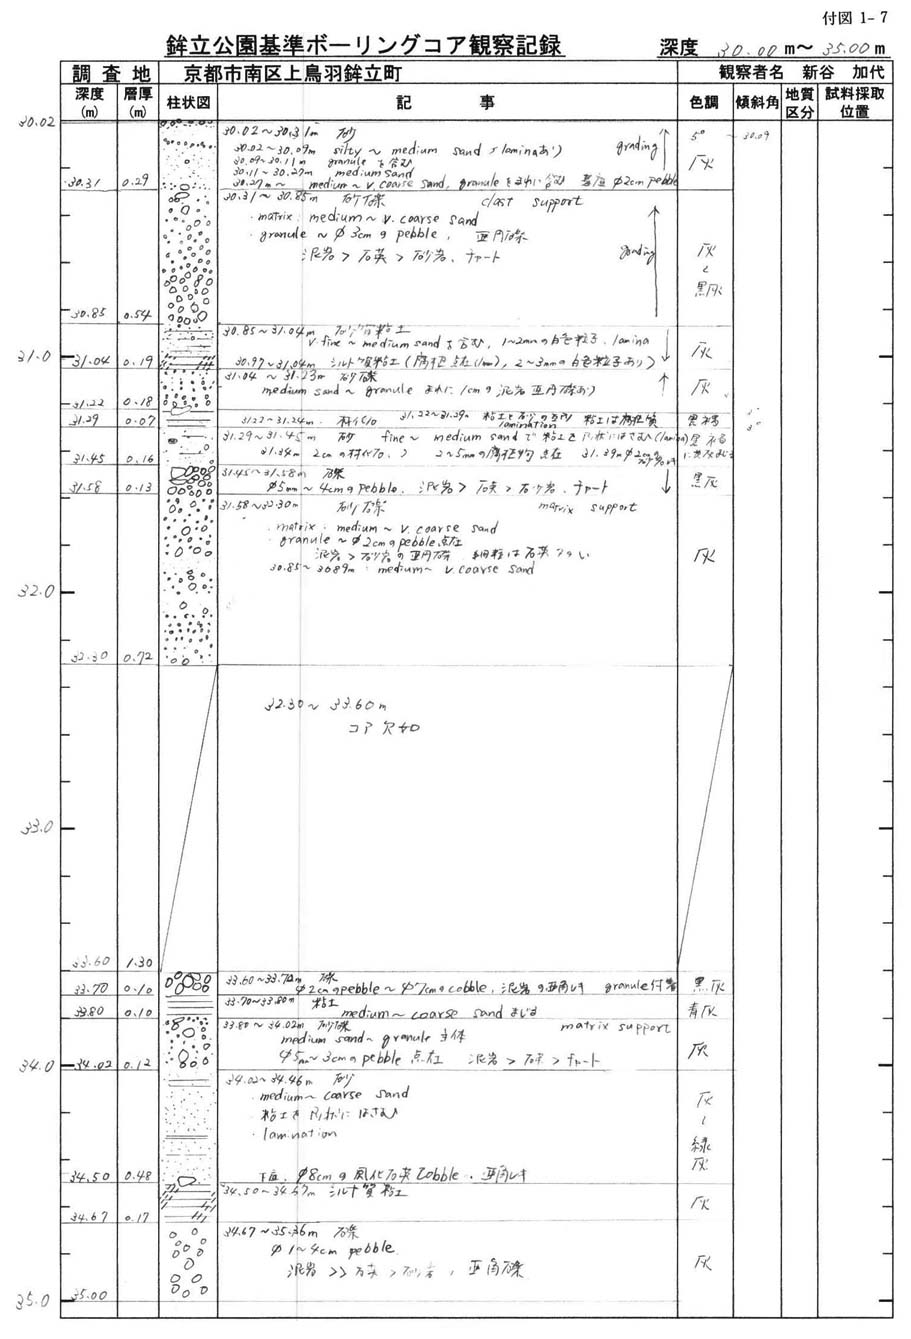 付図 1-7
鉾立公園基準ボーリングコア観察記録 深度 30.00 m～ 35.00 m
調査地 京都市南区上鳥羽鉾立町 観察者名 新谷 加代
深度(m) 層厚(m) 柱状図 記事 色調 傾斜角 地質区分 試料採取位置
30.02
30.02～30.31m 砂 5° ～ 30.09
30.02～30.09m silty ～ medium sand grading
30.09～30.11m granule を含む 灰
30.11～30.27m medium sand
30.31 0.29 30.27m～ medium～v.coarse sand, granule をまれに含む φ2cm pebble
30.31～30.85m 砂礫 clast support
・matrix: medium～v.coarse sand
・granule～φ3cmの pebble, 亜円礫 grading
泥岩 > 石英 > 砂岩、チャート 灰～黒灰
30.85 0.54
30.85～31.04m 砂質粘土
v.fine～medium sand を含む, 1～2mmの白色粒子, lamina
31.0 灰
31.04 0.19 30.97～31.04m シルト質粘土 (腐植点在(1mm), 2～3mmの白色粒子あり)
31.04～31.23m 砂礫
medium sand～granule まれに1cmの泥岩亜円礫あり 灰
31.22 0.18
31.29 0.07 31.22～31.24m 31.22～31.29m 粘土と砂の互層 lamination 粘土は腐植質 黒褐
31.29～31.45m 砂 fine～medium sand で粘土を 状にはさむ (lamina) 黒褐
31.45 0.16 31.34m 2cmの 2～5mmの腐植物点在 31.39m φ2cmの
31.45～31.58m 礫
31.58 0.13 φ5mm～4cmの pebble, 泥岩 > 石英 > 砂岩、チャート 黒灰
31.58～32.30m 砂礫 matrix support
・matrix: medium～v.coarse sand
・granule～φ2cmの pebble点在
泥岩 > 砂岩の亜円礫 細粒は石英 多い 灰
30.85～30.89m: medium～v.coarse sand
32.0
32.30 0.72
32.30～33.60m
コア欠如
33.0
33.60 1.30
33.60～33.70m 礫
33.70 0.10 φ2cmの pebble～φ7cmの cobble, 泥岩の亜角レキ granule付着 黒灰
33.70～33.80m 粘土
33.80 0.10 medium～coarse sand まじる 青灰
33.80～34.02m 砂礫 matrix support
medium sand～granule 主体
34.0 34.02 0.12 φ5mm～3cmの pebble 点在 泥岩 > 石英 > チャート 灰
34.02～34.46m 砂
・medium～coarse sand
・粘土を 状にはさむ
・lamination 灰～緑灰
34.50 0.48 下底, φ8cmの風化石英 cobble, 亜角レキ
34.50～34.67m シルト質粘土
34.67 0.17 灰
34.67～35.36m 礫
φ1～4cm pebble
泥岩 >> 石英 > 砂岩, 亜角礫 灰
35.0 35.00